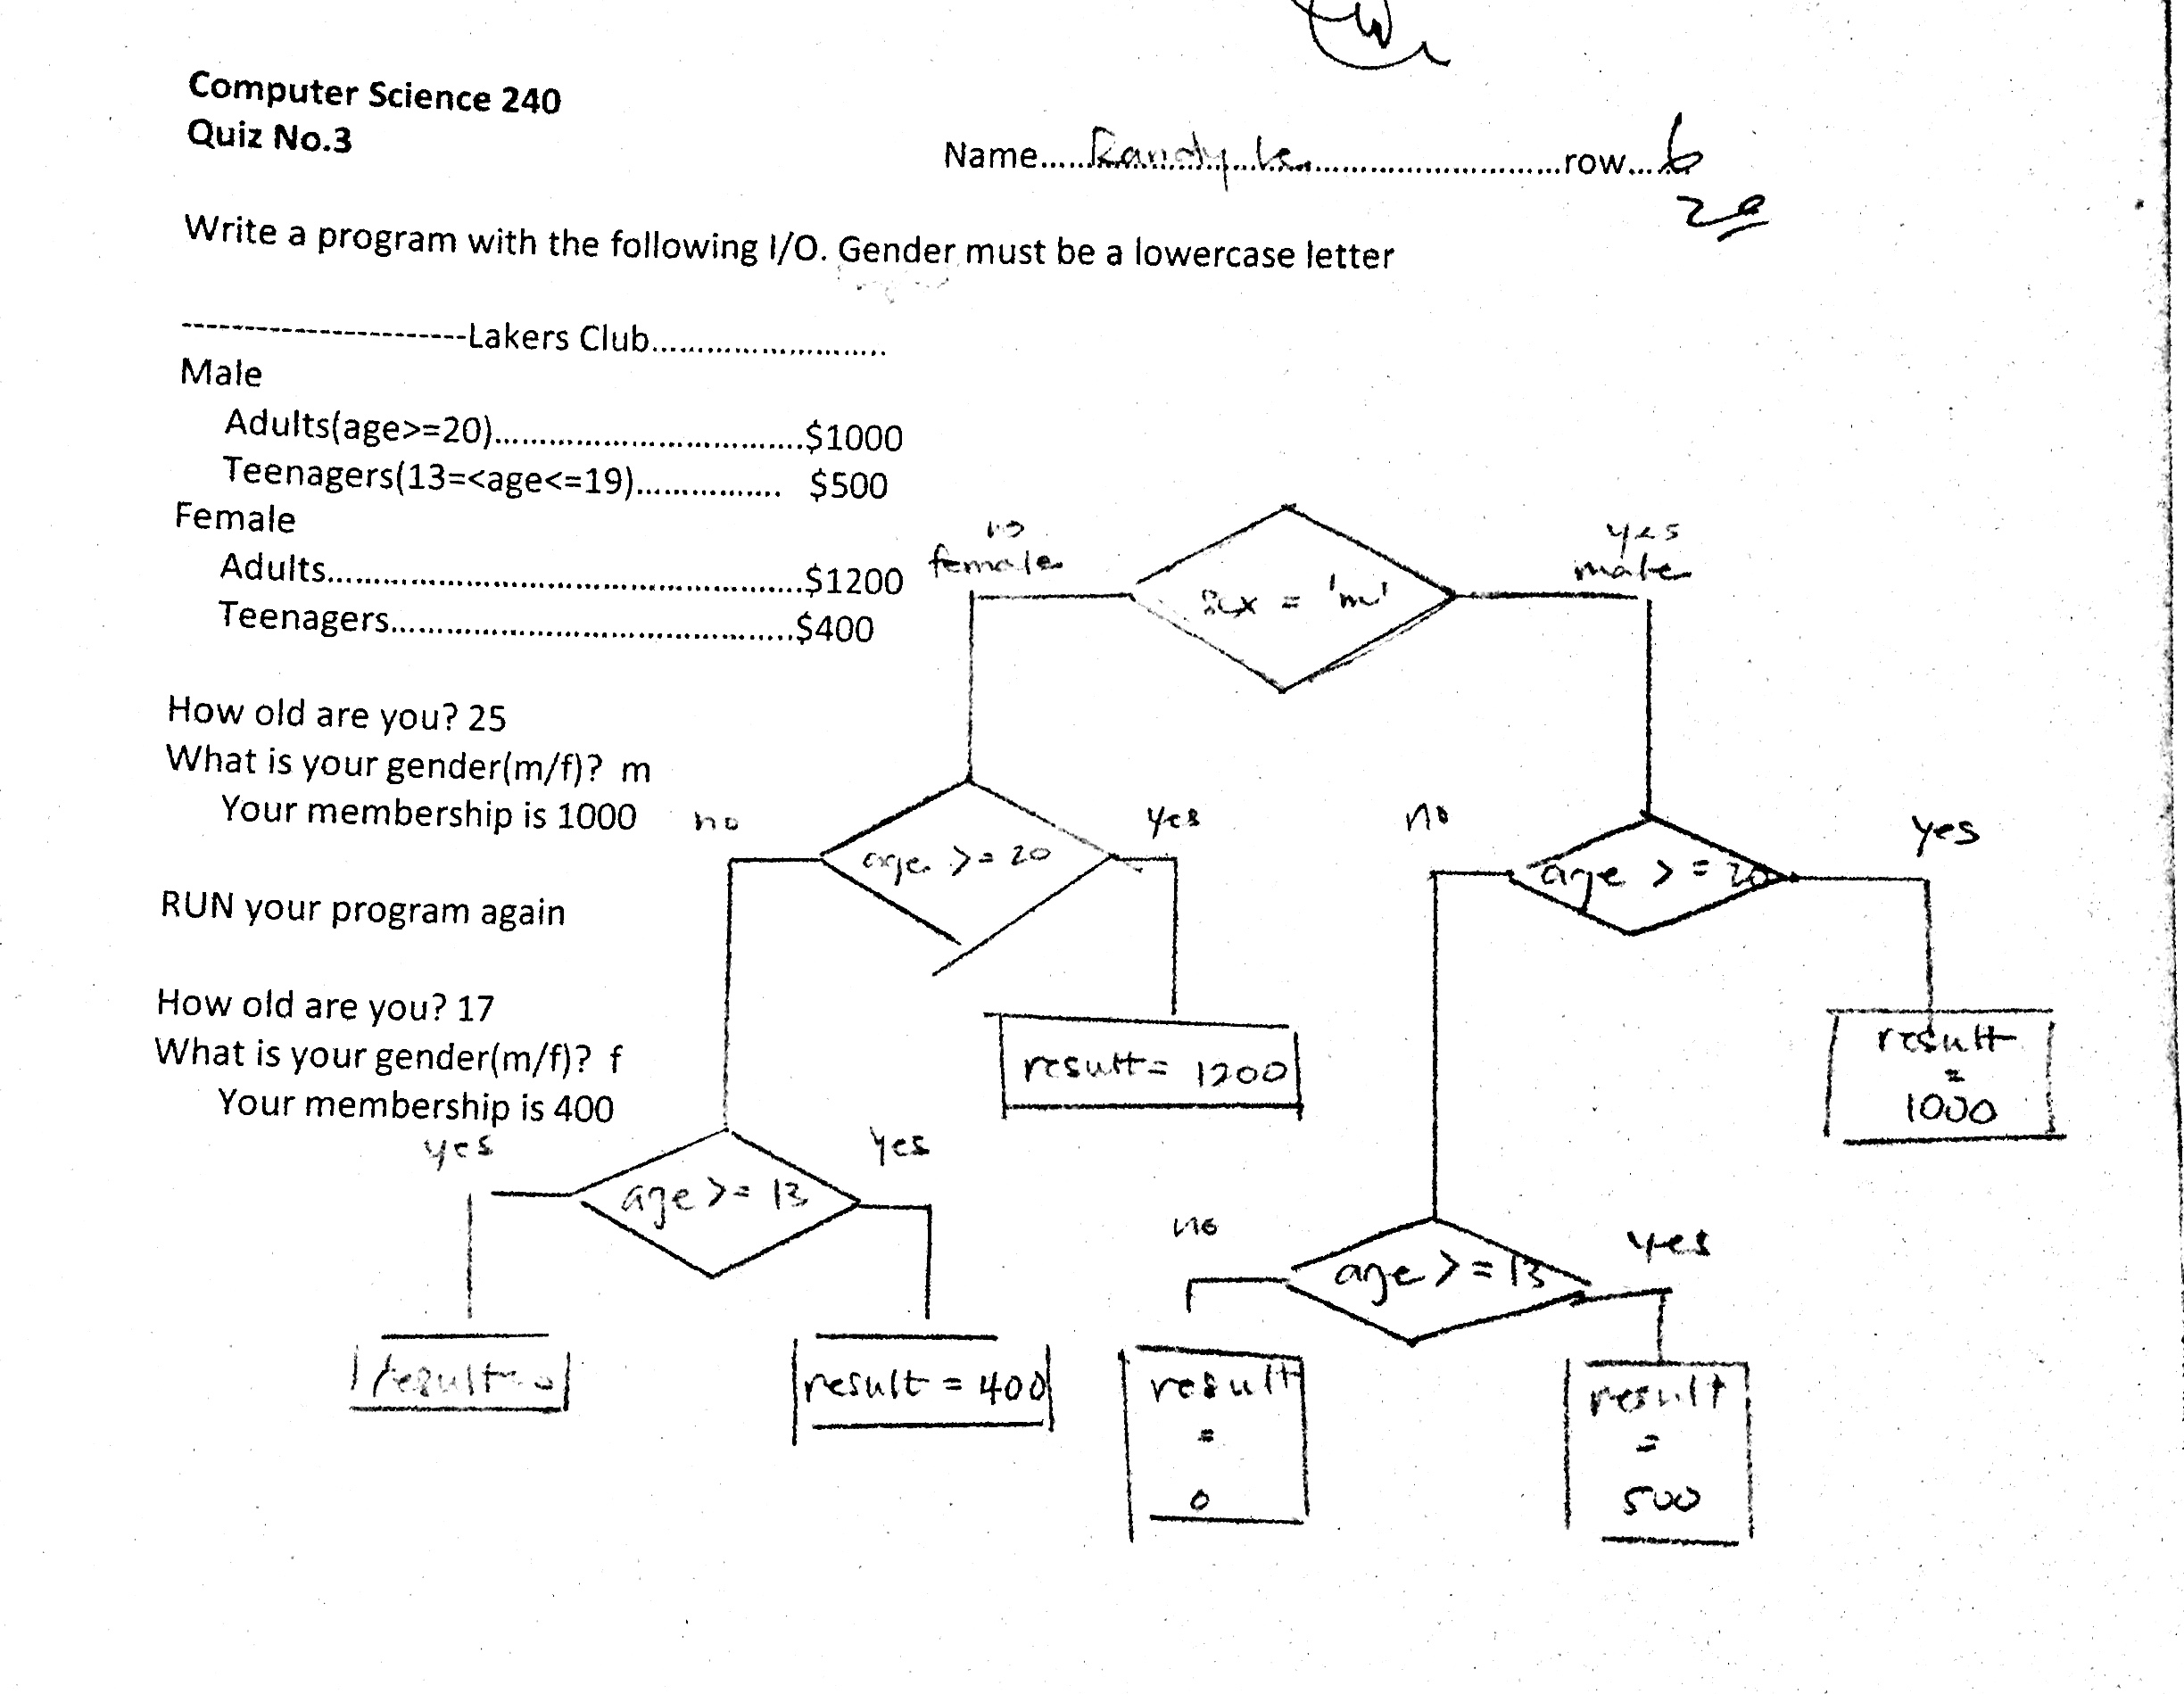 Computer Science 240
Quiz No.3
Name......Randy Le.......................................row......6
Write a program with the following I/O. Gender must be a lowercase letter
-----------------------Lakers Club..........................
Male
Adults(age>=20)..................................$1000
Teenagers(13=<age<=19)................ $500
Female
Adults....................................................$1200
Teenagers............................................$400
How old are you? 25
What is your gender(m/f)? m
Your membership is 1000
RUN your program again
How old are you? 17
What is your gender(m/f)? f
Your membership is 400
no
female
sex = 'm'
yes
male
no
age >= 20
yes
no
age >= 20
yes
result = 1200
result
=
1000
yes
age >= 13
yes
no
age >= 13
yes
result = 400
result
=
0
result
=
500